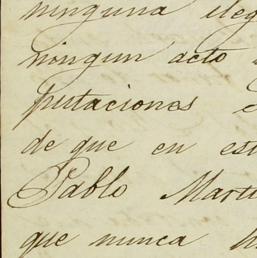 ninguna eleg
ningun acto
putaciones e
de que en est
Pablo Marti
que nunca h